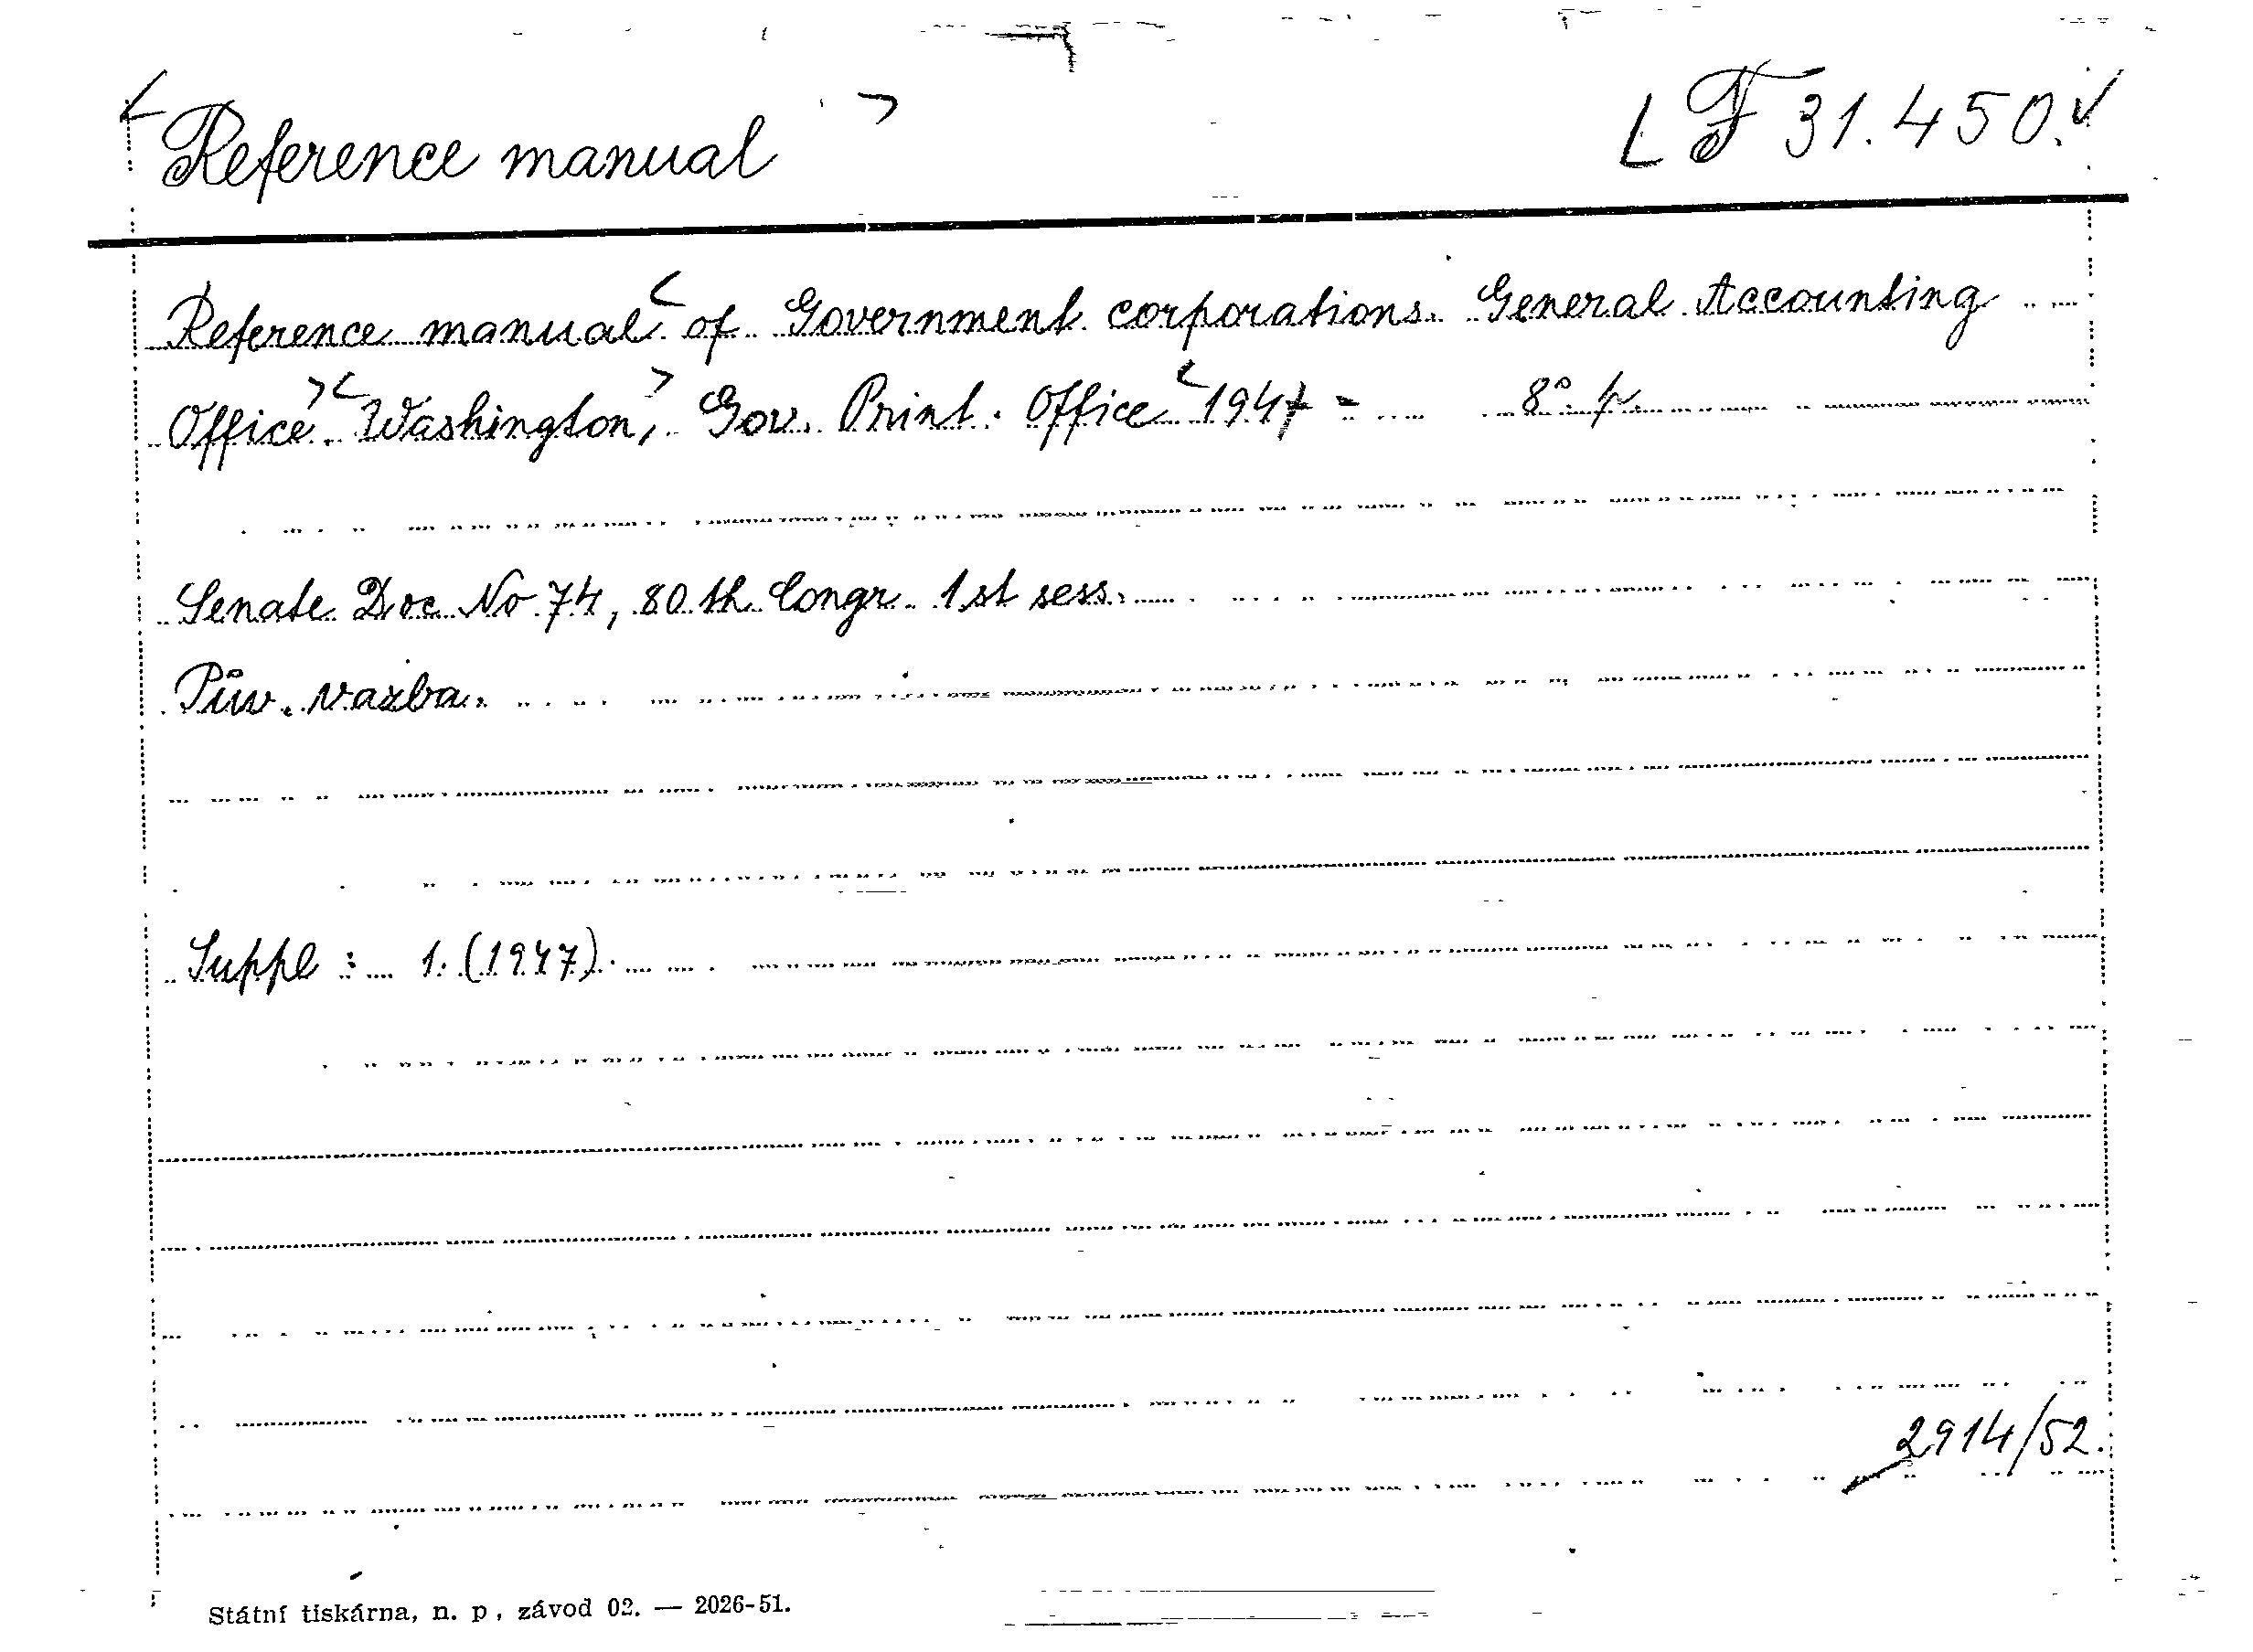 < Reference manual > L F 31.450.√
Reference manual < of Government corporations. General Accounting
Office > . < Washington, > Gov. Print. Office < 1947 - 8° p.
Senate Doc No 74, 80 th Congr. 1 st sess.
Pův. vazba.
Suppl : 1. (1947).
2914/52.
Státní tiskárna, n. p , závod 02. — 2026-51.